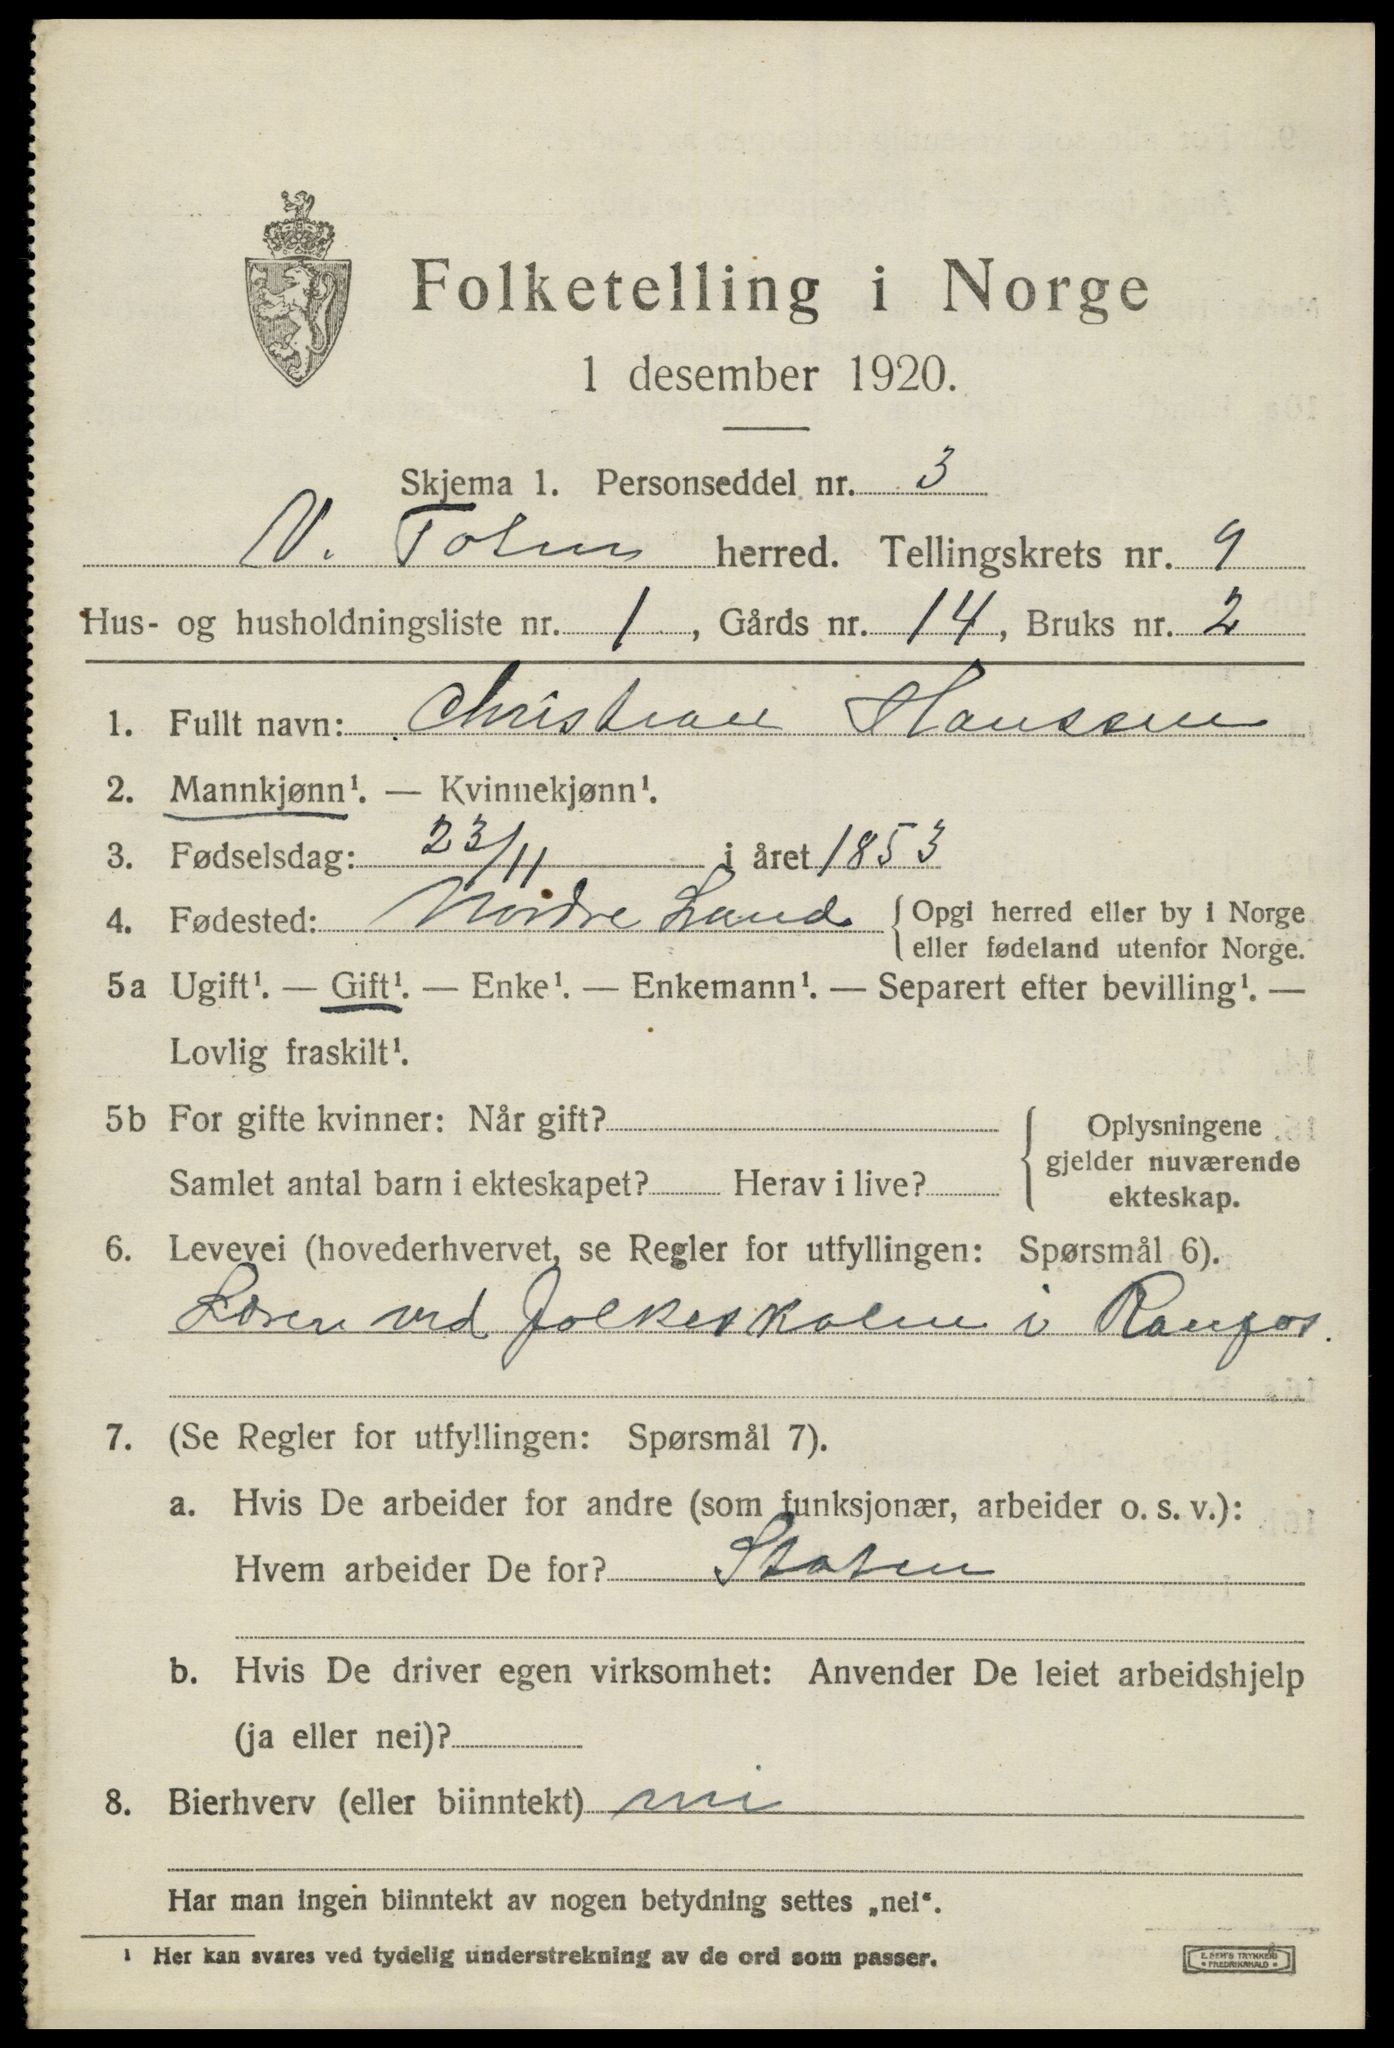 Folketelling i Norge
1 desember 1920.
Skjema 1. Personseddel nr. 3
V. Toten herred. Tellingskrets nr. 9
Hus- og husholdningsliste nr. 1, Gårds nr. 14, Bruks nr. 2
1. Fullt navn: Christian Hanssen
2. Mannkjønn¹. — Kvinnekjønn¹.
3. Fødselsdag: 23/11 i året 1853
4. Fødested: Nordre Land { Opgi herred eller by i Norge
eller fødeland utenfor Norge.
5a Ugift¹. — Gift¹. — Enke¹. — Enkemann¹. — Separert efter bevilling¹. —
Lovlig fraskilt¹.
5b For gifte kvinner: Når gift? { Oplysningene
gjelder nuværende
Samlet antal barn i ekteskapet? Herav i live?
ekteskap.
6. Levevei (hovederhvervet, se Regler for utfyllingen: Spørsmål 6).
Lærer ved folkeskolen i Raufos.
7. (Se Regler for utfyllingen: Spørsmål 7).
a. Hvis De arbeider for andre (som funksjonær, arbeider o. s. v.):
Hvem arbeider De for? Staten
b. Hvis De driver egen virksomhet: Anvender De leiet arbeidshjelp
(ja eller nei)?
8. Bierhverv (eller biinntekt) nei
Har man ingen biinntekt av nogen betydning settes „nei“.
¹ Her kan svares ved tydelig understrekning av de ord som passer.
E. SEM'S TRYKKERI
• FREDRIKSHALD •